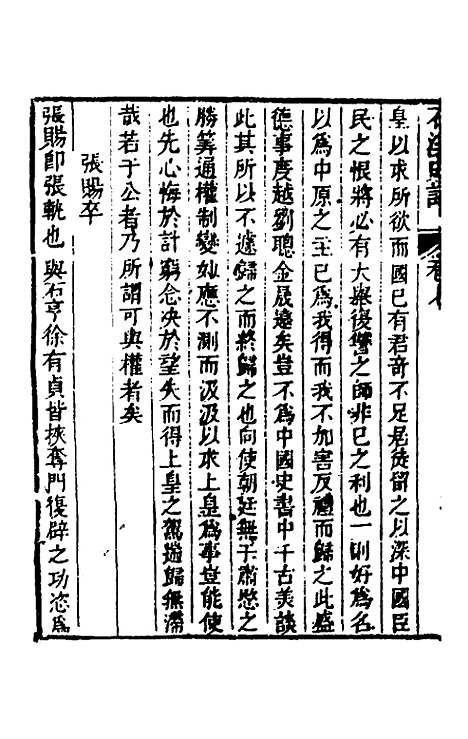 皇以求所欲而國已有君奇不足居徒留之以深中國臣
民之恨將必有大舉復讐之師非已之利也一則好為名
以為中原之主已為我得而我不加害反禮而歸之此盛
德事度越劉聰金晟遠矣豈不為中國史書中千古美談
此其所以不遽歸之而終歸之也向使朝廷無于肅愍之
勝筭通權制變妙應不測而汲汲以求上皇為事豈能使
也先心悔於計窮念決於望失而得上皇之駕遄歸無滯
哉若于公者乃所謂可與權者矣
張賜卒
張賜即張軏也與石亨徐有貞皆挾奪門復辟之功恣為